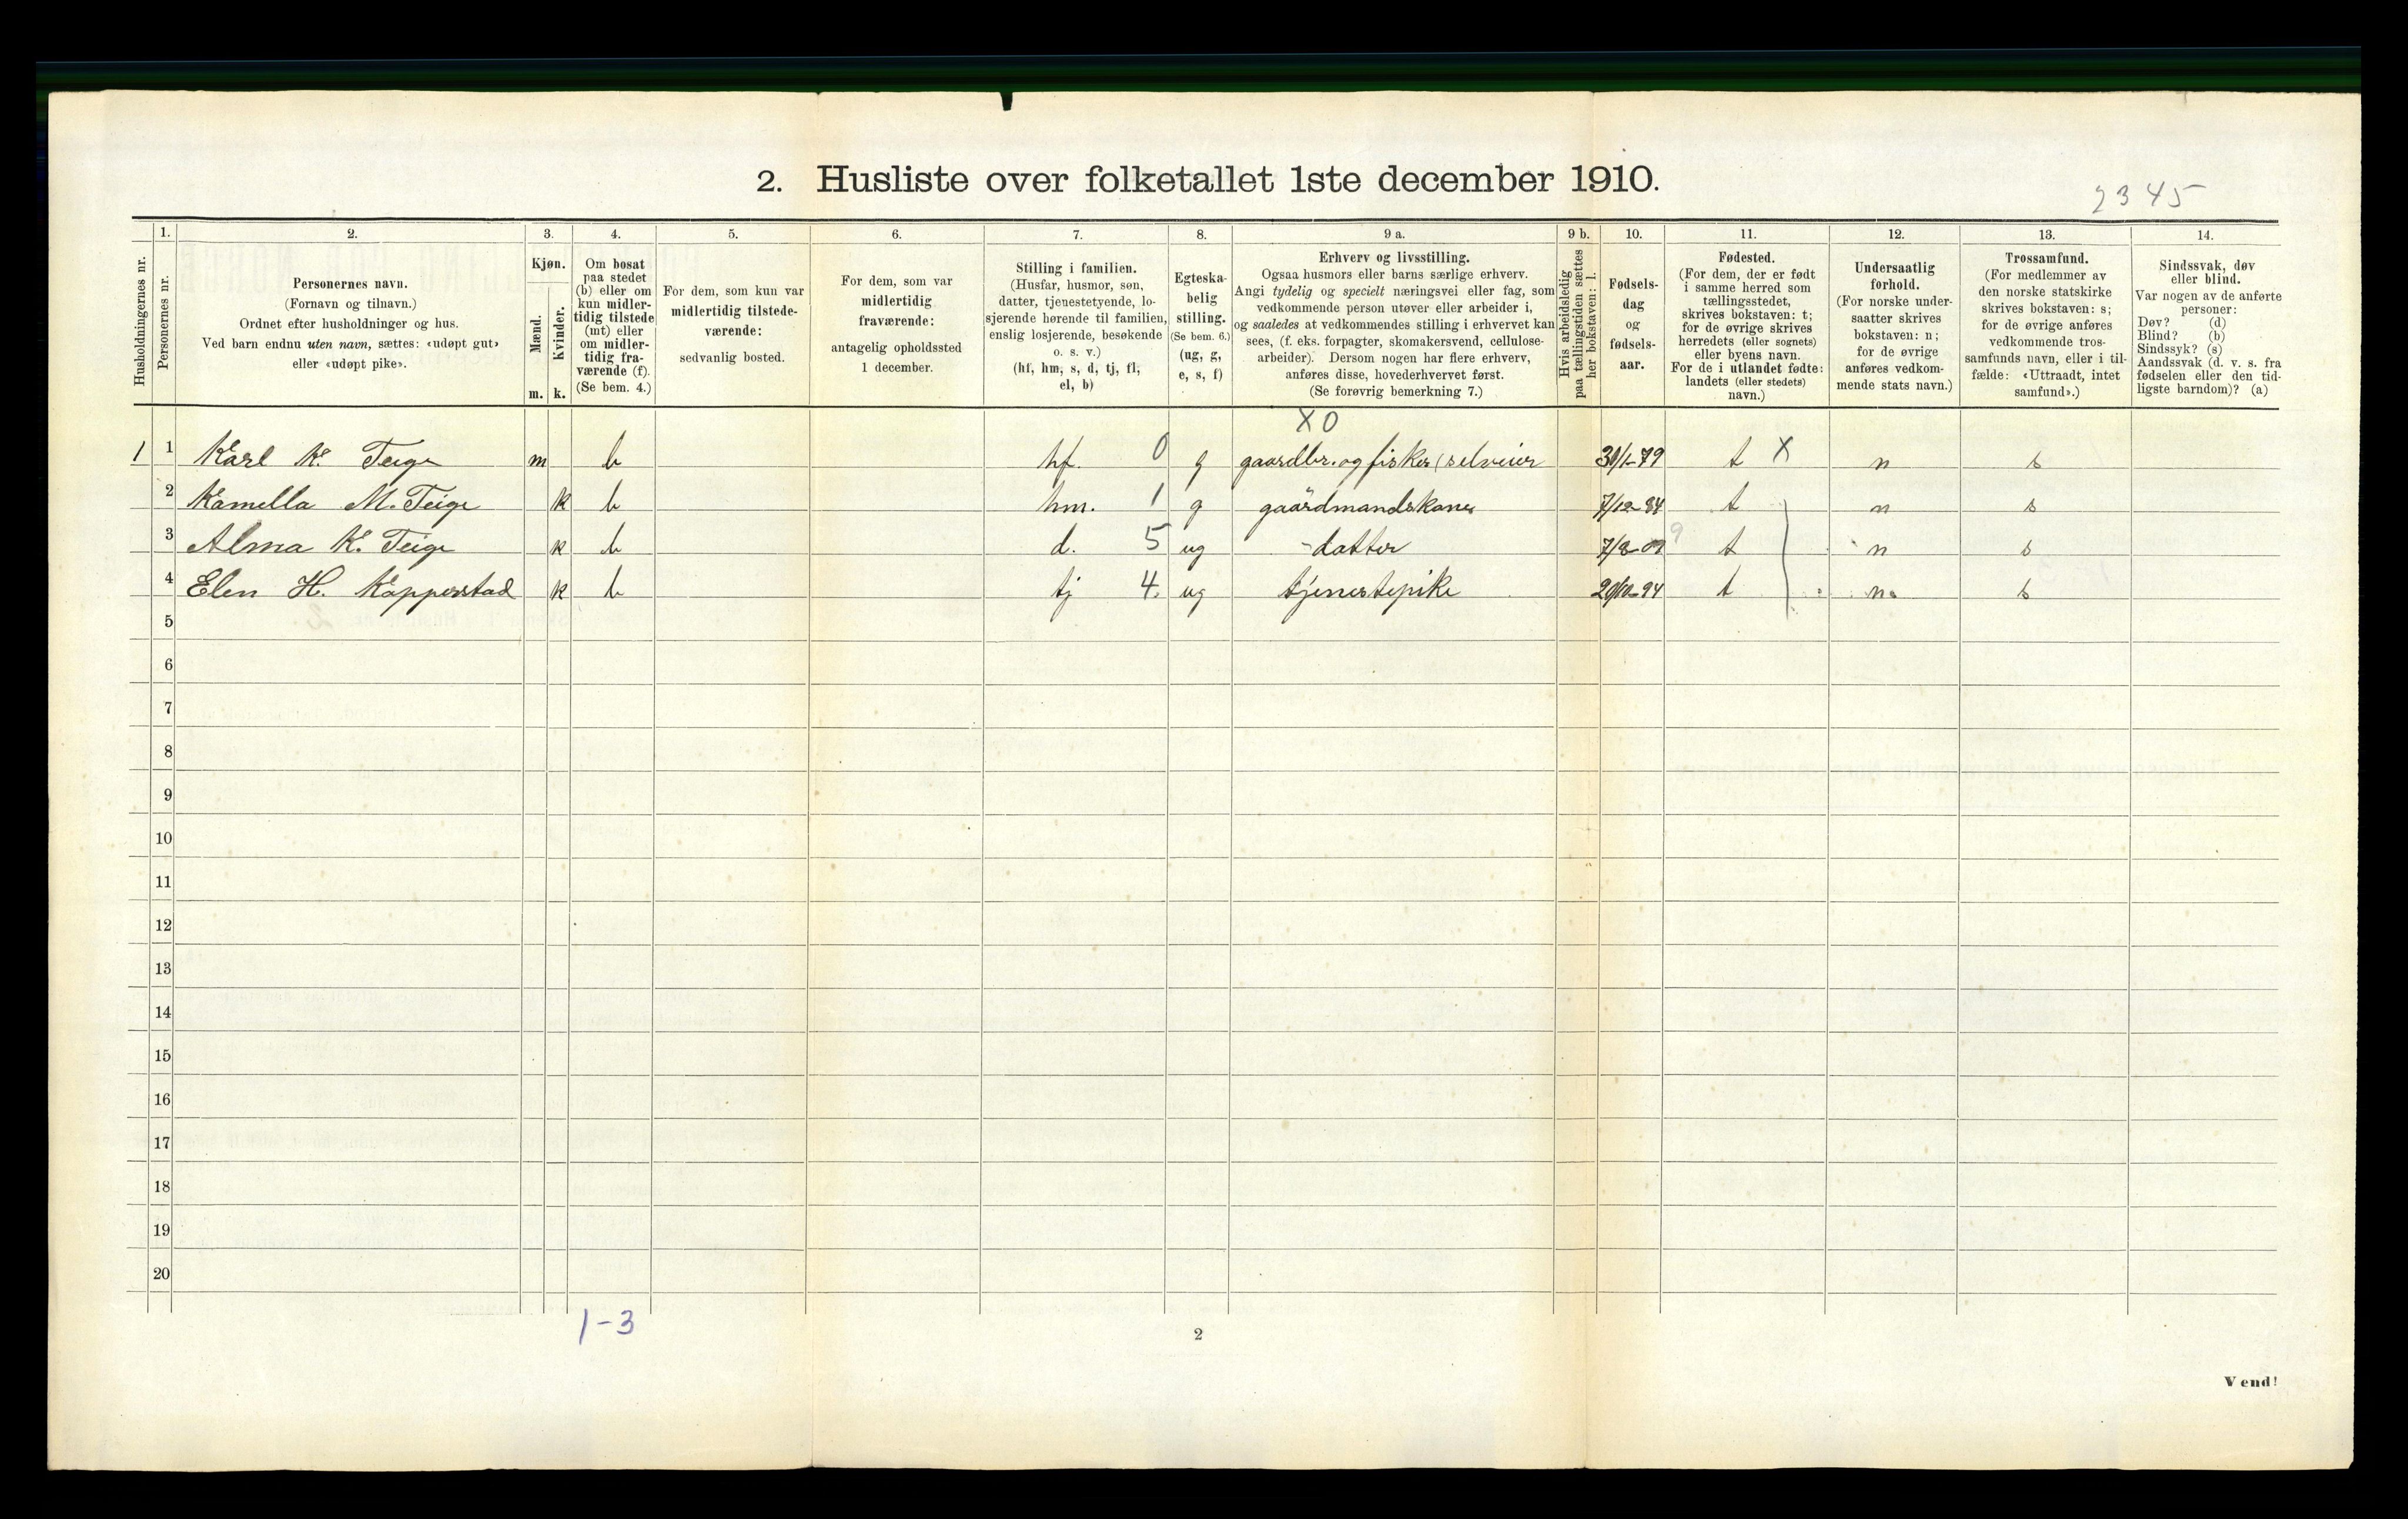 2. Husliste over folketallet 1ste december 1910.
2345
Husholdningernes nr.
1.
Personernes nr.
2.
Personernes navn.
(Fornavn og tilnavn.)
Ordnet efter husholdninger og hus.
Ved barn endnu uten navn, sættes: «udøpt gut»
eller «udøpt pike».
3.
Kjøn.
Mænd.
Kvinder.
m. k.
4.
Om bosat
paa stedet
(b) eller om
kun midler-
tidig tilstede
(mt) eller
om midler-
tidig fra-
værende (f).
(Se bem. 4.)
5.
For dem, som kun var
midlertidig tilstede-
værende:
sedvanlig bosted.
6.
For dem, som var
midlertidig
fraværende:
antagelig opholdssted
1 december.
7.
Stilling i familien.
(Husfar, husmor, søn,
datter, tjenestetyende, lo-
sjerende hørende til familien,
enslig losjerende, besøkende
o. s. v.)
(hf, hm, s, d, tj, fl,
el, b)
8.
Egteska-
belig
stilling.
(Se bem. 6.)
(ug, g,
e, s, f)
9 a.
Erhverv og livsstilling.
Ogsaa husmors eller barns særlige erhverv.
Angi tydelig og specielt næringsvei eller fag, som
vedkommende person utøver eller arbeider i,
og saaledes at vedkommendes stilling i erhvervet kan
sees, (f. eks. forpagter, skomakersvend, cellulose-
arbeider). Dersom nogen har flere erhverv,
anføres disse, hovederhvervet først.
(Se forøvrig bemerkning 7.)
9 b.
Hvis arbeidsledig
paa tællingstiden sættes
her bokstaven: l.
10.
Fødsels-
dag
og
fødsels-
aar.
11.
Fødested.
(For dem, der er født
i samme herred som
tællingsstedet,
skrives bokstaven: t;
for de øvrige skrives
herredets (eller sognets)
eller byens navn.
For de i utlandet fødte:
landets (eller stedets)
navn.)
12.
Undersaatlig
forhold.
(For norske under-
saatter skrives
bokstaven: n;
for de øvrige
anføres vedkom-
mende stats navn.)
13.
Trossamfund.
(For medlemmer av
den norske statskirke
skrives bokstaven: s;
for de øvrige anføres
vedkommende tros-
samfunds navn, eller i til-
fælde: «Uttraadt, intet
samfund».)
14.
Sindssvak, døv
eller blind.
Var nogen av de anførte
personer:
Døv? (d)
Blind? (b)
Sindssyk? (s)
Aandssvak (d. v. s. fra
fødselen eller den tid-
ligste barndom)? (a)
XO
1 1 Karl K. Teige m b hf. 0 g gaardbr. og fisker (selveier 30/1-79 t X n s
2 Kamella M. Teige k b hm. 1 g gaardmandskone 7/12-84 t n s
3 Alma K. Teige k b d. 5 ug -datter 7/8-09 9 t n s
4 Elen H. Kopperstad k b tj 4. ug tjenestepike 20/10-94 t n. s
5
6
7
8
9
10
11
12
13
14
15
16
17
18
19
20
1-3
2
Vend!